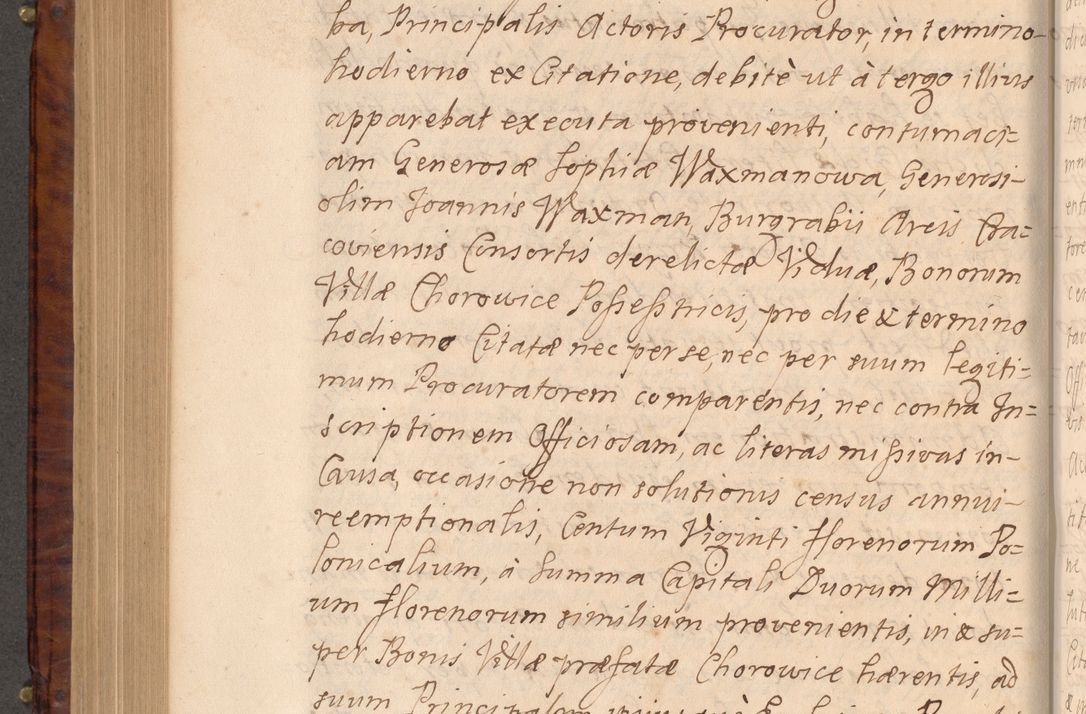 ba, Principalis Actoris Procurator, in termino
hodierno ex Citatione, debitè ut à tergo illius
apparebat executa provenienti, contumaci=
am Generosæ Sophiæ Waxmanowa, Generosi
olim Joannis Waxman, Burgrabii Arcis Cra=
coviensis Consortis derelictæ Viduæ, Bonorum
Villæ Chorowice Possesstricis, pro die & termino
hodierno Citatæ nec per se, nec per suum legiti=
mum Procuratorem comparentis, nec contra In=
scriptionem Officiosam, ac literas missivas in
Causa, occasione non solutionis census annui
reemptionalis, Centum Viginti florenorum Po=
lonicalium, à Summa Capitali Duorum Milli=
um florenorum similium provenientis, in & su=
per Bonis Villæ præfatæ Chorowice hærentis, ad
suum Principalem